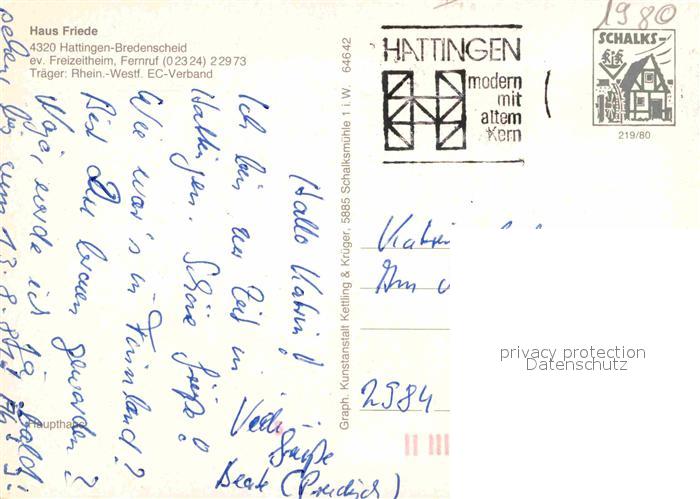 Haus Friede
4320 Hattingen-Bredenscheid
ev. Freizeitheim, Fernruf (0 23 24) 2 29 73
Träger: Rhein.-Westf. EC-Verband
Hallo Katrin!
Ich bin zur Zeit in
Hattingen. Schöne Grüße!
Wie war's in Finnland?
Bist Du braun geworden?
Naja, werde ich ja bald
sehen, bis zum 13.8.
Viele
Grüße
Beate
Haupthaus
Graph. Kunstanstalt Kettling & Krüger, 5885 Schalksmühle 1 i.W. 64642
HATTINGEN
modern
mit
altem
Kern
1980
SCHALKS-
219/80
Katrin
Am
2984
privacy protection
Datenschutz